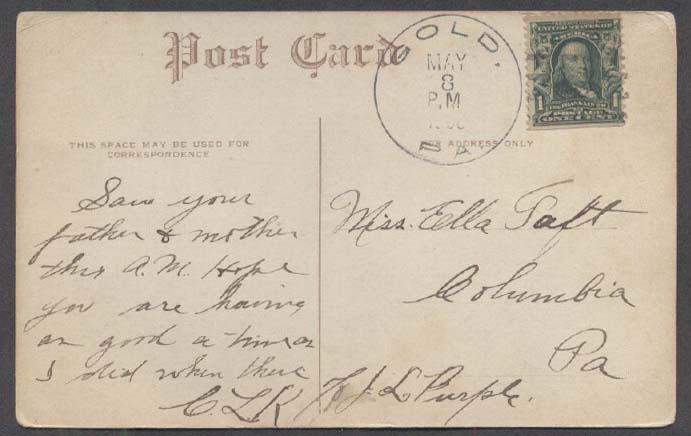 Post Card
GOLD.
MAY
8
P.M
PA.
UNITED STATES OF
AMERICA
1 FRANKLIN 1
POSTAGE
ONE CENT
THIS SPACE MAY BE USED FOR
CORRESPONDENCE
ADDRESS ONLY
Saw your
father & mother
this A.M. Hope
you are having
as good a time as
I did when there
C.L.K
Miss. Ella Taft
Columbia
Pa
L. Purple.